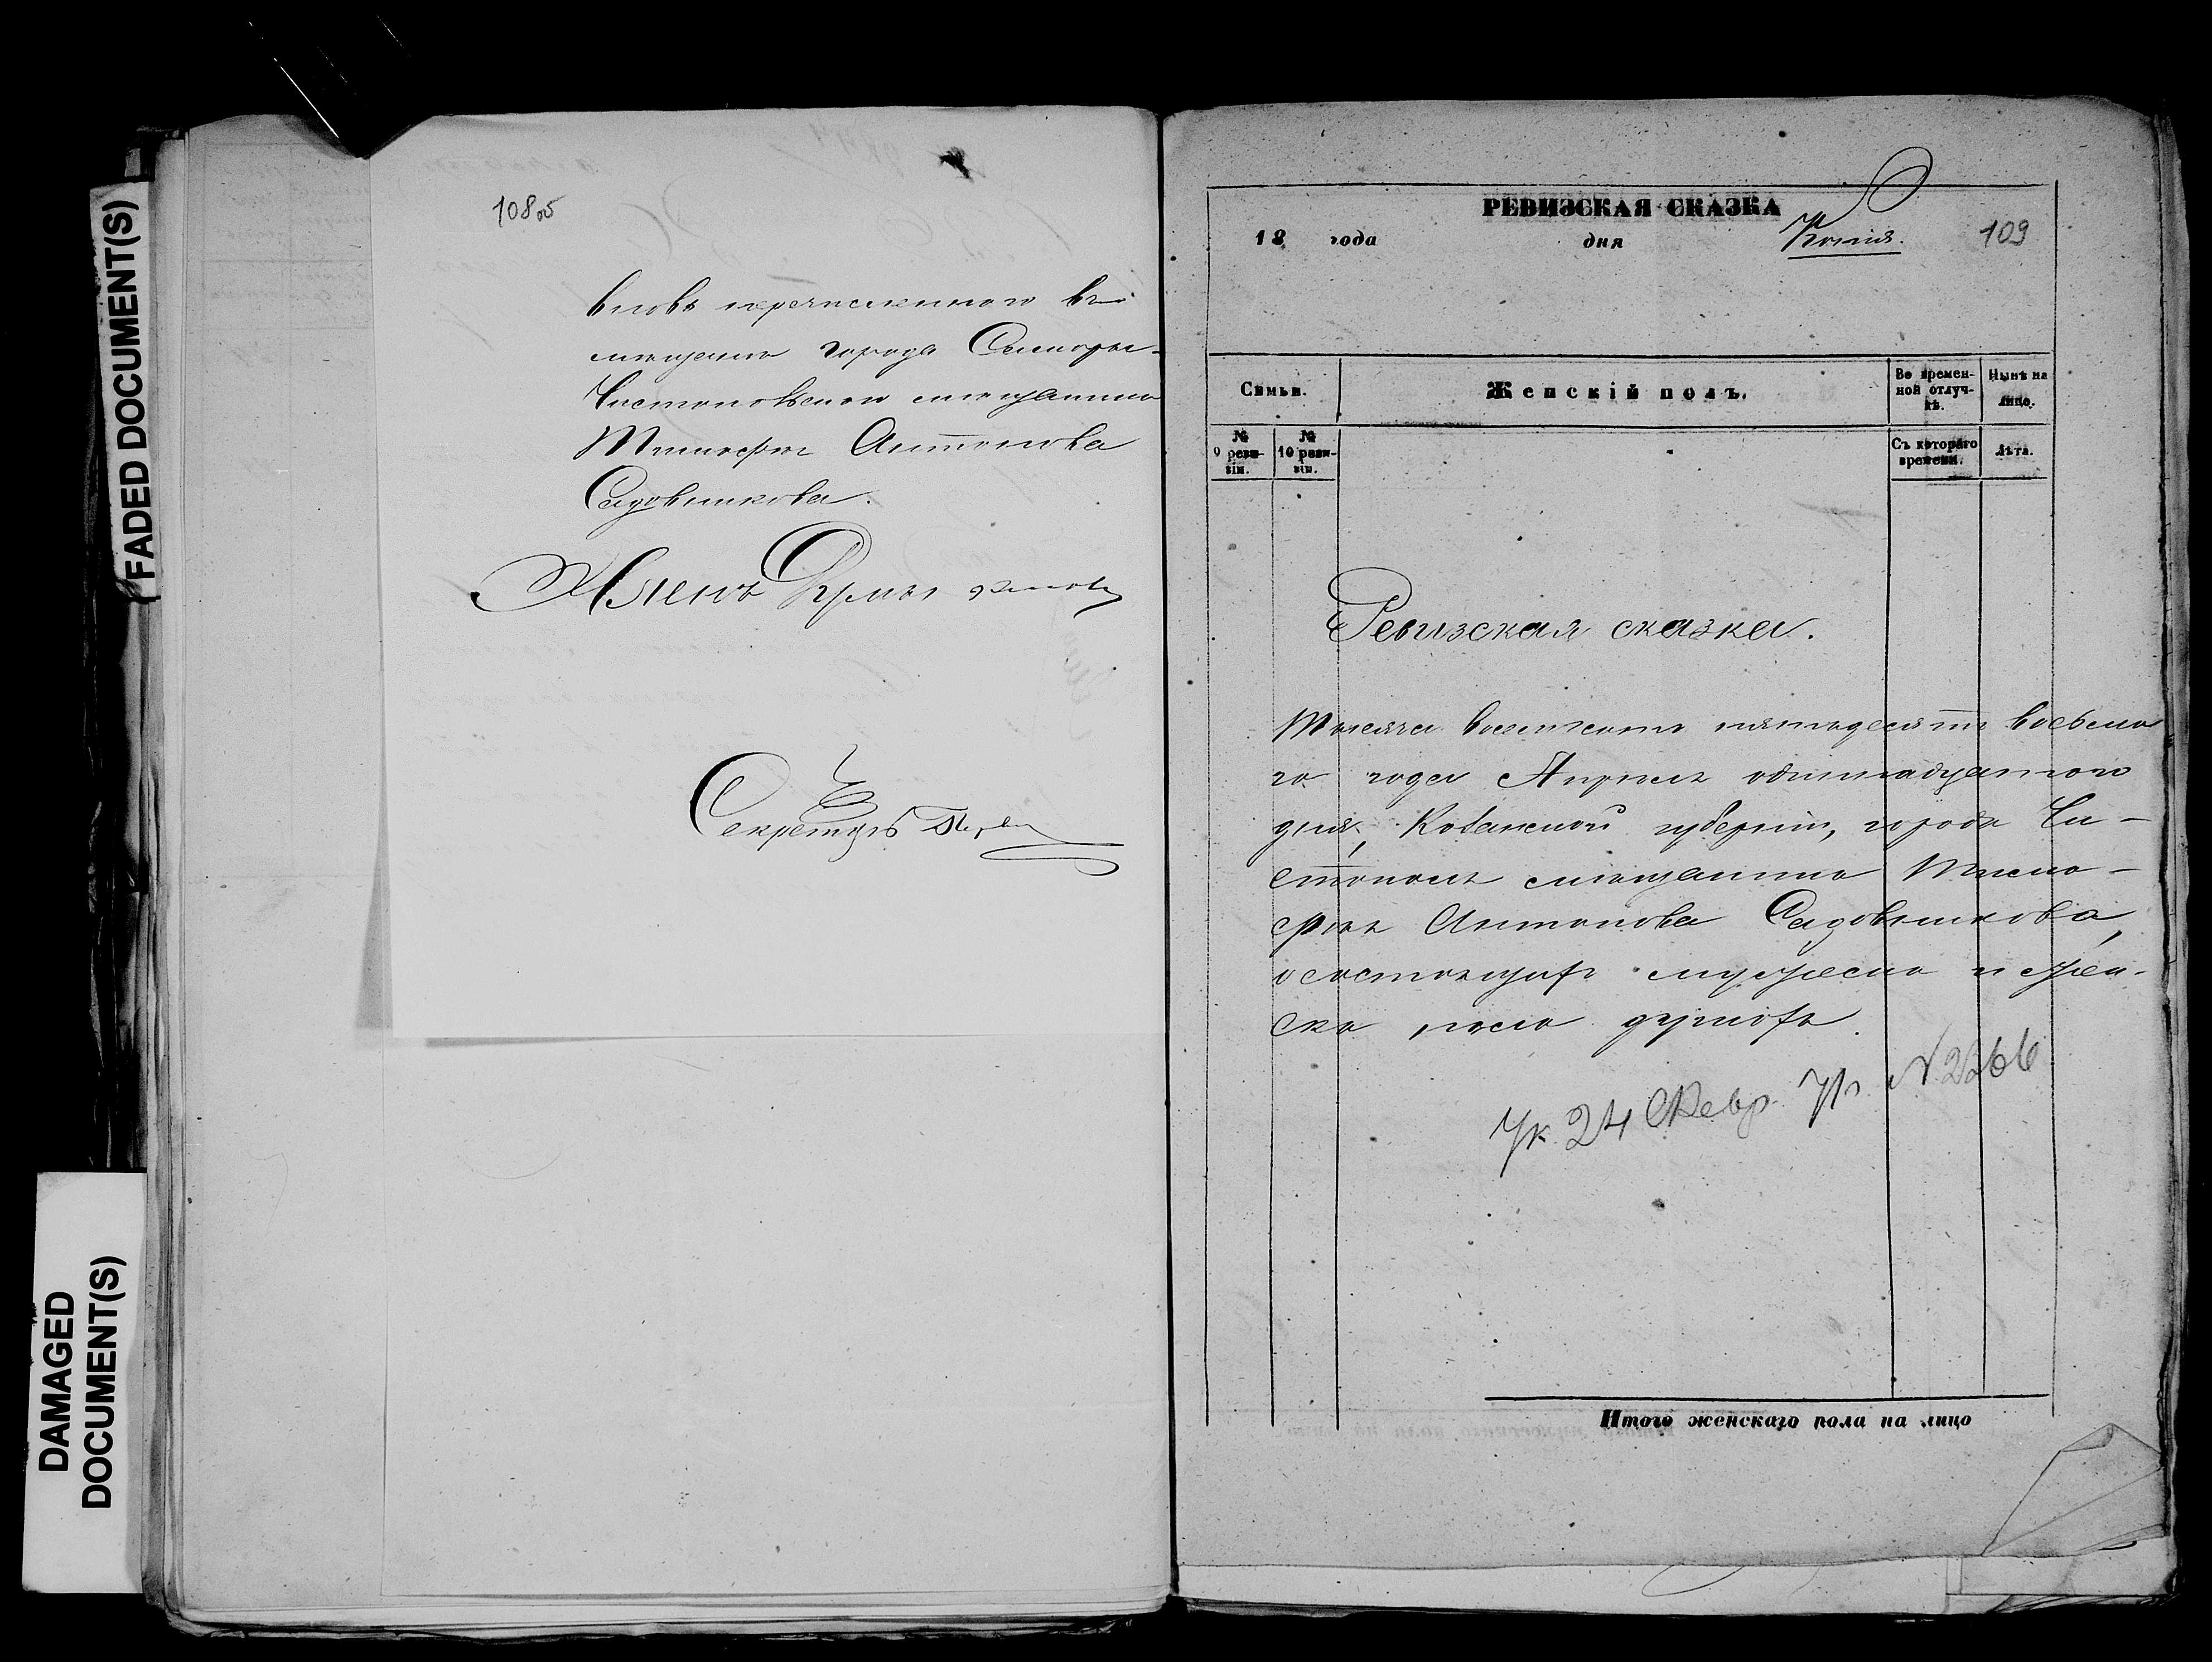 FADED DOCUMENT(S)
DAMAGED
DOCUMENT(S)
108об
вновь перечисленного въ
мещане города Самары
Чистопольскаго мещанина
Тимофея Антонова
Садовникова.
Членъ Думы
Секретарь
РЕВИЗСКАЯ СКАЗКА
18 года дня Копія. 109
Семьи.
Женскій полъ.
Во времен-
ной отлуч-
кѣ.
Нынѣ на
лицо.
№
9 реви-
зіи.
№
10 реви-
зіи.
Съ котораго
времени.
Лѣта.
Ревизская сказка.
Тысяча восемьсотъ пятьдесятъ восьма
го года Апреля одинадцатого
дня, Казанской губерніи, города Чи-
стополя мещанина Тимо-
фея Антонова Садовникова,
о состоящихъ мужеска и жен-
ска пола душахъ.
Ук. 24 Февр. № 2266
Итого женскаго пола на лицо